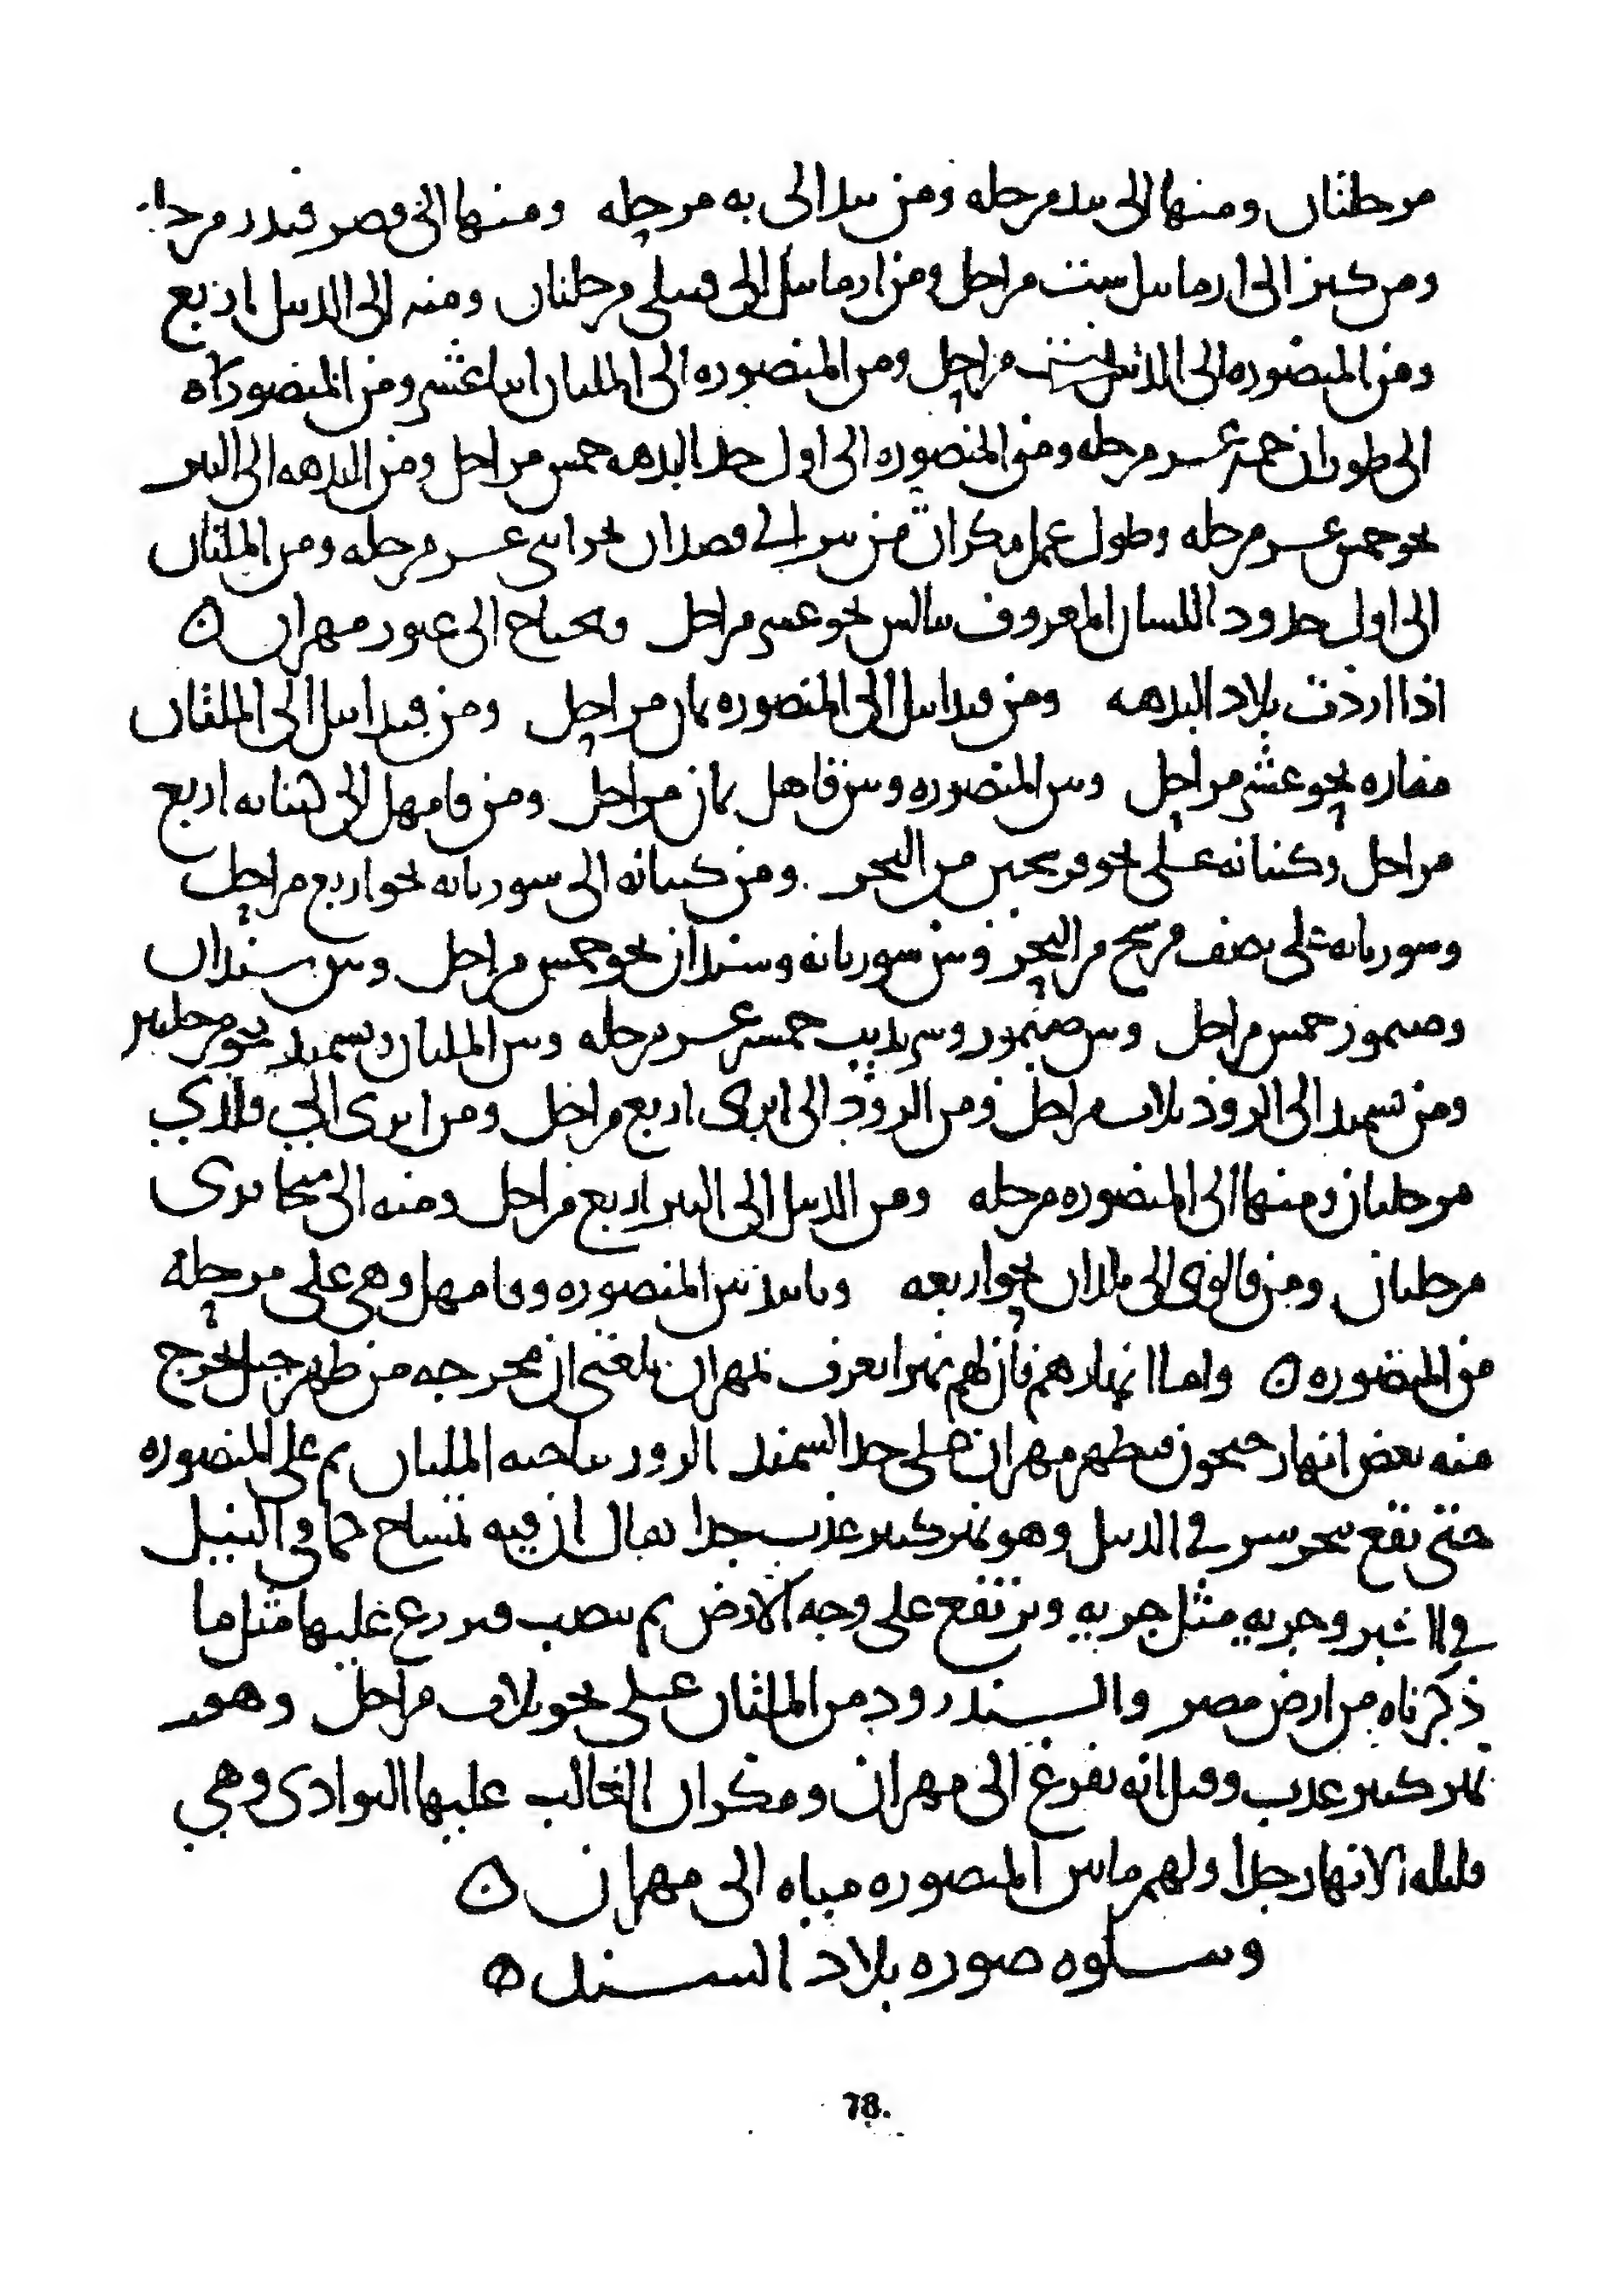 مرحلتان ومنها الى بند مرحله ومن بند الى به مرحله ومنها الى قصر قند مرحله
ومن كيز الى ارمابيل ست مراحل ومن ارمابيل الى قنبلى مرحلتان ومنه الى الدبيل اربع
ومن المنصوره الى الدبيل ست مراحل ومن المنصوره الى الملتان اثنا عشر ومن المنصوره
الى طوران خمس عشر مرحله ومن المنصوره الى اول حد البدهه خمس مراحل ومن البدهه الى التيز
نحو خمس عشر مرحله وطول عمل مكران من تيز الى قصدان نحو اثنى عشر مرحله ومن الملتان
الى اول حدود اللسان المعروف ببالس نحو عشر مراحل ويحتاج الى عبور مهران ه
اذا اردت بلاد البدهه ومن قندابيل الى المنصوره ثمان مراحل ومن قندابيل الى الملتان
مفازه نحو عشر مراحل وبين المنصوره وبين قامهل ثمان مراحل ومن قامهل الى كنبايه اربع
مراحل وكنبايه على نحو فرسخين من البحر ومن كنبايه الى سوربايه نحو اربع مراحل
وسوربايه على نصف فرسخ من البحر وبين سوربايه وسندان نحو خمس مراحل وبين سندان
وصيمور خمس مراحل وبين صيمور وسرنديب خمسه عشر مرحله وبين الملتان وبسمند نحو مرحلتين
ومن بسمد الى الروذ ثلاث مراحل ومن الروذ الى انرى اربع مراحل ومن انرى الى قلرى
مرحلتان ومنها الى المنصوره مرحله ومن الدبيل الى التيز اربع مراحل ومنه الى منجابرى
مرحلتان ومن قالوى الى بلدان نحو اربعه وبانيذ بين المنصوره وقامهل وهى على مرحله
من المنصوره ه واما انهارهم فان لهم نهرا يعرف بمهران بلغنى ان مخرجه من ظهر جبل يخرج
منه بعض انهار جيحون فيظهر مهران على حد السمند الرور بناحيه الملتان ثم على المنصوره
حتى يقع فى البحر فى الدبيل وهو نهر كبير عذب جدا يقال ان فيه تمساح كما فى النيل
فى الاشبر وجريه مثل جريه ويرتفع على وجه الارض ثم ينصب فيزرع عليها مثل ما
ذكرناه من ارض مصر والسندرود من الملتان على نحو ثلاث مراحل وهو
نهر كبير عذب وقيل انه يفرغ الى مهران ومكران الغالب عليها البوادى وهى
قليله الانهار جدا ولهم مابين المنصوره مياه الى مهران ه
وستلوه صوره بلاد السند ه
78.